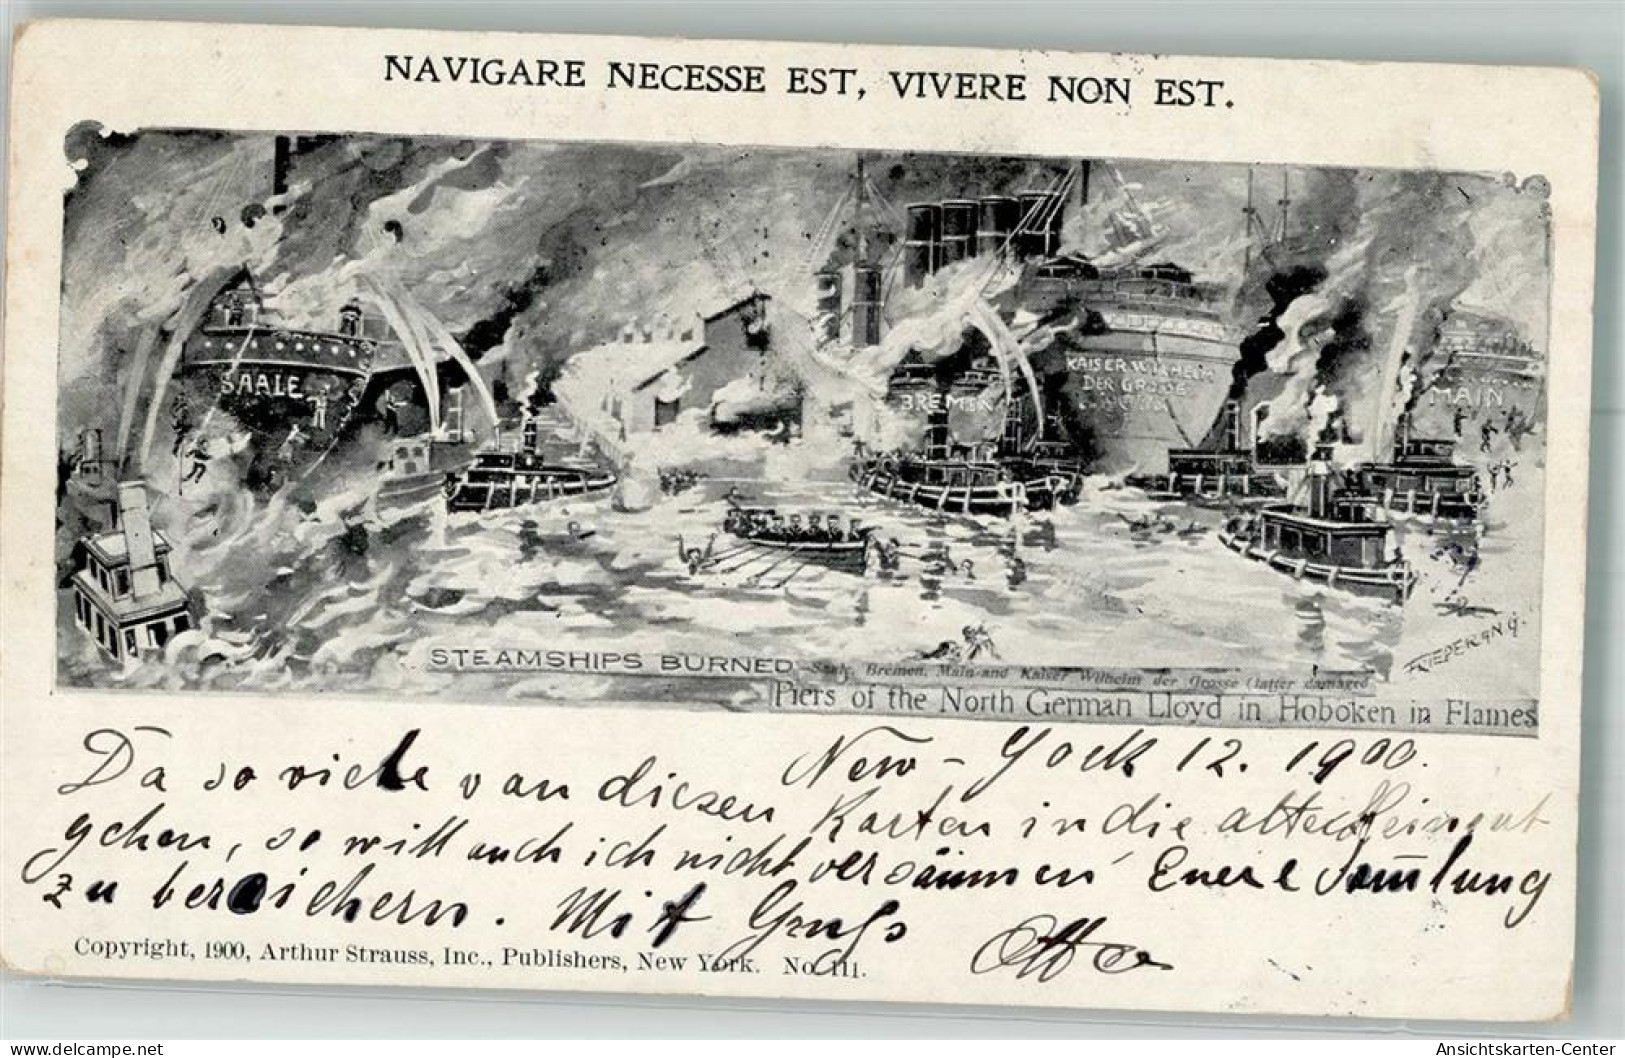 NAVIGARE NECESSE EST, VIVERE NON EST.
SAALE
BREMEN
KAISER WILHELM
DER GROSSE
MAIN
FRIEDERANG.
STEAMSHIPS BURNED Saale, Bremen, Main and Kaiser Wilhelm der Grosse (latter damaged
Piers of the North German Lloyd in Hoboken in Flames
New-York 12. 1900.
Da so viele von diesen Karten in die alte Heimat
gehen, so will auch ich nicht versäumen Euere Sammlung
zu bereichern. Mit Gruß Otto
Copyright, 1900, Arthur Strauss, Inc., Publishers, New York. No. 111.
AnsichtsKarten-Center
Ansichtskarten-Center